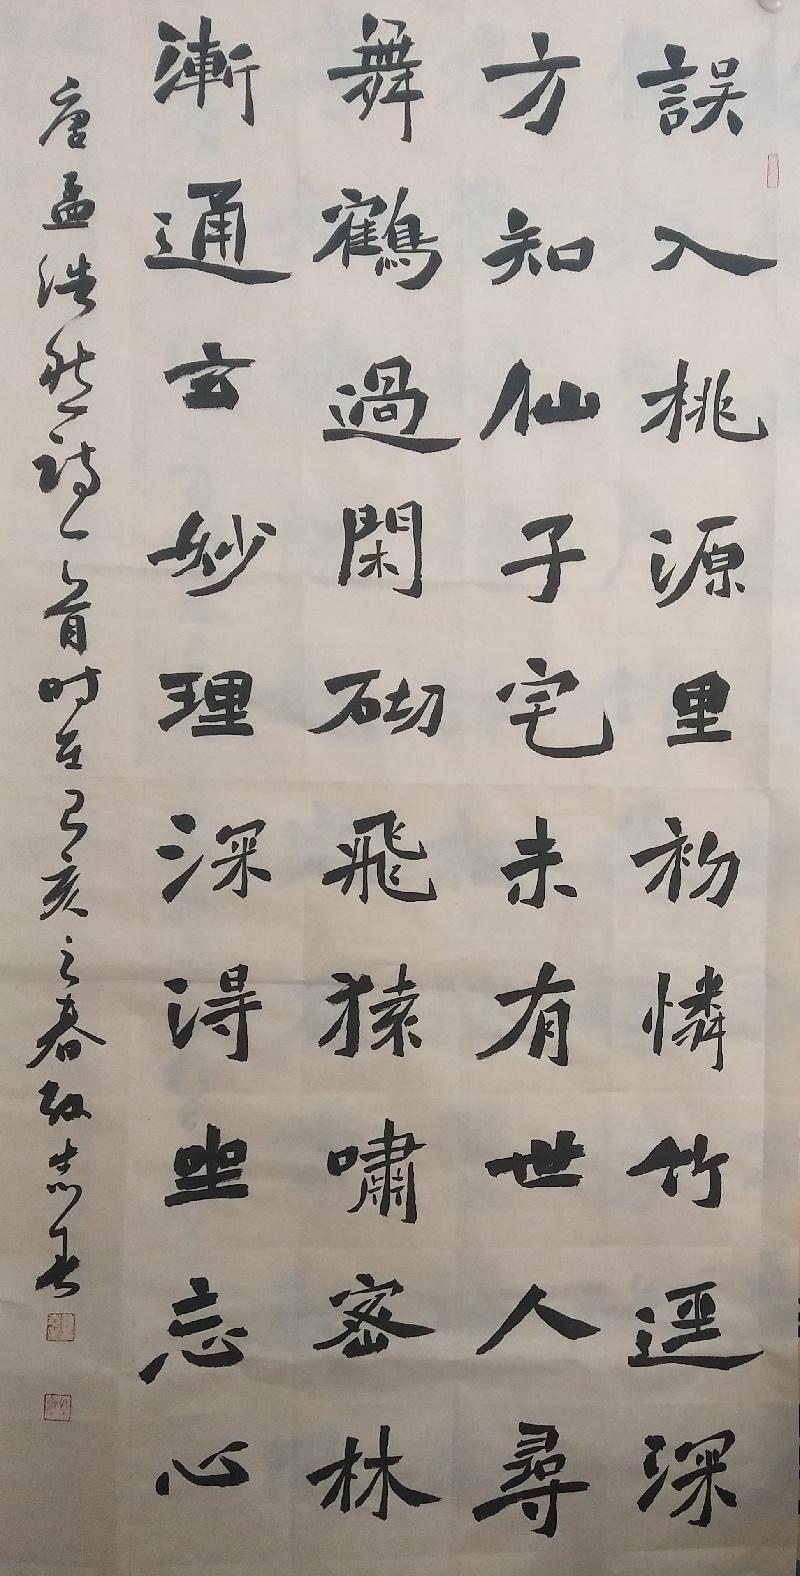 誤入桃源里初憐竹逕深
方知仙子宅未有世人尋
舞鶴過閑砌飛猿嘯密林
漸通玄妙理深得坐忘心
唐孟浩然詩一首时在己亥之春